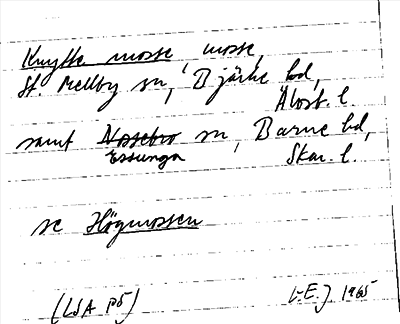 Knytte mosse, mosse,
St. Mellby sn, Bjärke hd,
Älvsb. l.
samt Nossebro sn, Barne hd,
Essunga
Skar. l.
se Högmossen
(LSA p5)
1965